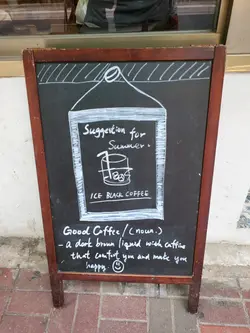 Suggestion for
Summer.
ICE BLACK COFFEE
Good Coffee /(noun.)
- a dark brown liquid with caffeine
that comfort you and make you
happy.